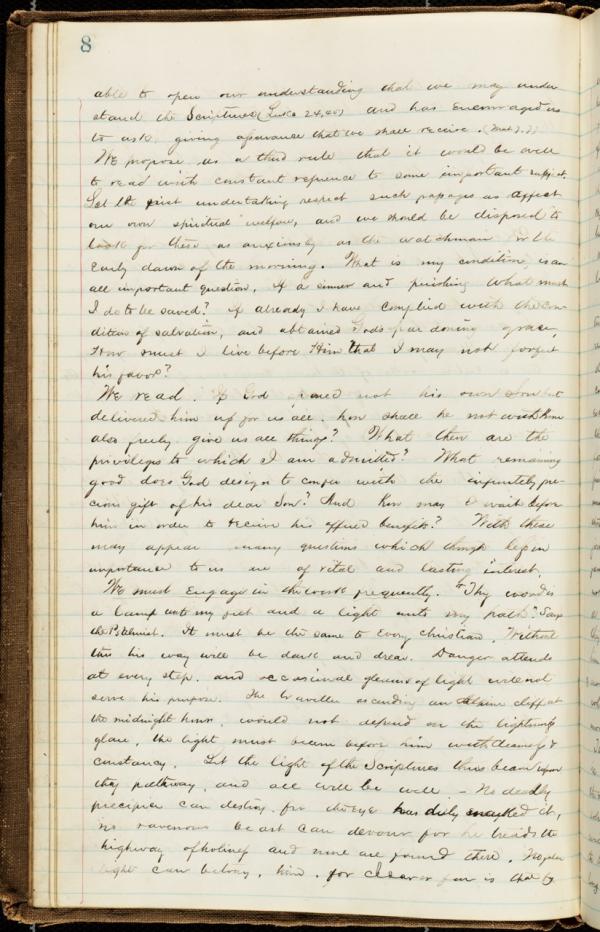 8
able to open our understanding that we may under
stand the Scriptures (Luke 24,45) and has encouraged us
to ask, giving assurance that we shall receive. (Mat 7.7)
We propose as a third rule that it would be well
to read with constant refrence to some important subject.
Let the first undertaking respect such passages as affect
our own spiritual welfare, and we should be disposed to
look for these as anxiously as the watchman for the
early dawn of the morning. What is my condition, is an
all important question, if a sinner and perishing what must
I do to be saved? if already I have complied with the con
dition of salvation, and obtained Gods pardoning grace,
How must I live before Him that I may not forget
his favor?
We read. If God spared not his own Son but
delivered him up for us all, how shall he not with him
also freely give us all things? What then are the
privileges to which I am admitted? What remaining
good does God design to confer with the infinitely pre-
cious gift of his dear Son? And how may I wait before
him in order to receive his offered benefits? With these
may appear many questions which though less in
importance to us are of vital and lasting interest.
We must engage in the work frequently. "Thy word is
a lamp unto my feet and a light unto my path." Says
the Psalmist. It must be the same to every Christian. Without
this his way will be dark and drear. Danger attends
at every step, and occasional gleams of light will not
serve his purpose. The traveller ascending an Alpine cliff at
the midnight hour, would not depend on the lightnings
glare, the light must beam before him with clearness &
constancy. Let the light of the Scriptures thus beam upon
thy pathway, and all will be well. - No deadly
precipice can destroy, for the eye has duly marked it,
no ravenous beast can devour for he treads the
highway of holiness and none are found there. No
light can betray him, for clearer far is that